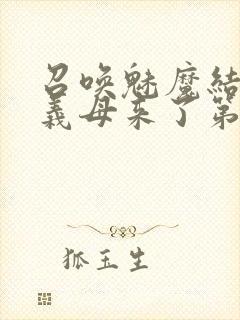 召唤魅魔结
义母来了第
狐玉生